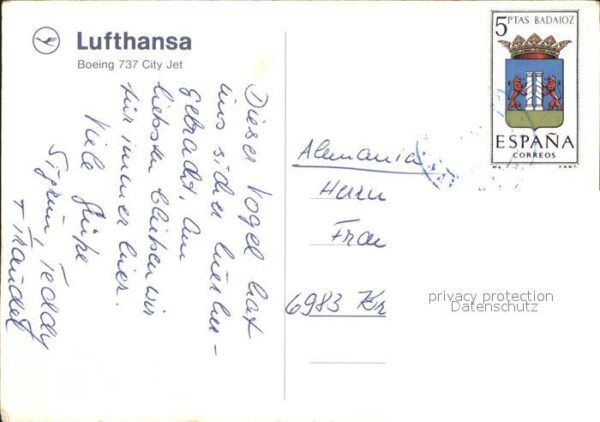 Lufthansa
Boeing 737 City Jet
Dieser Vogel hat
uns sicher hierher-
gebracht. Am
liebsten bleiben wir
für immer hier.
Viele Grüße
Sigrun, Teddy
+ Traudel
5 PTAS BADAJOZ
ESPAÑA
CORREOS
Alemania
Herrn
Frau
6983 Kr
privacy protection
Datenschutz